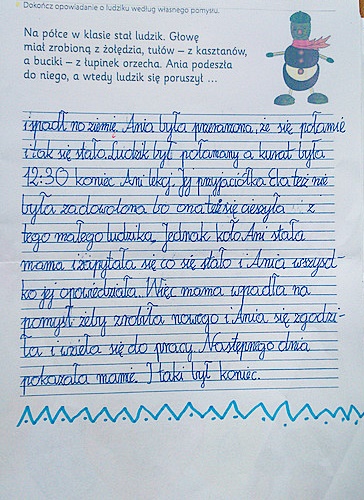 Dokończ opowiadanie o ludziku według własnego pomysłu.
Na półce w klasie stał ludzik. Głowę
miał zrobioną z żołędzia, tułów – z kasztanów,
a buciki – z łupinek orzecha. Ania podeszła
do niego, a wtedy ludzik się poruszył ...
i spadł no ziemię. Ania była przerażona, że się połamie
i tak się stało. Ludzik był połamany a kurat była
12:30 koniec Ani lekcj. Jej przyjaciółka Ela też nie
była zadowolona bo ona też się cieszyła z
tego małego ludzika. Jednak koło Ani stała
mama i zapytała się co się stało i Ania wszyst-
ko jej opowiedziała. Więc mama wpadła na
pomysł żeby zrobiła nowego i Ania się zgodzi-
ła i wzieła się do pracy. Następnego dnia
pokazała mamie. I taki był koniec.